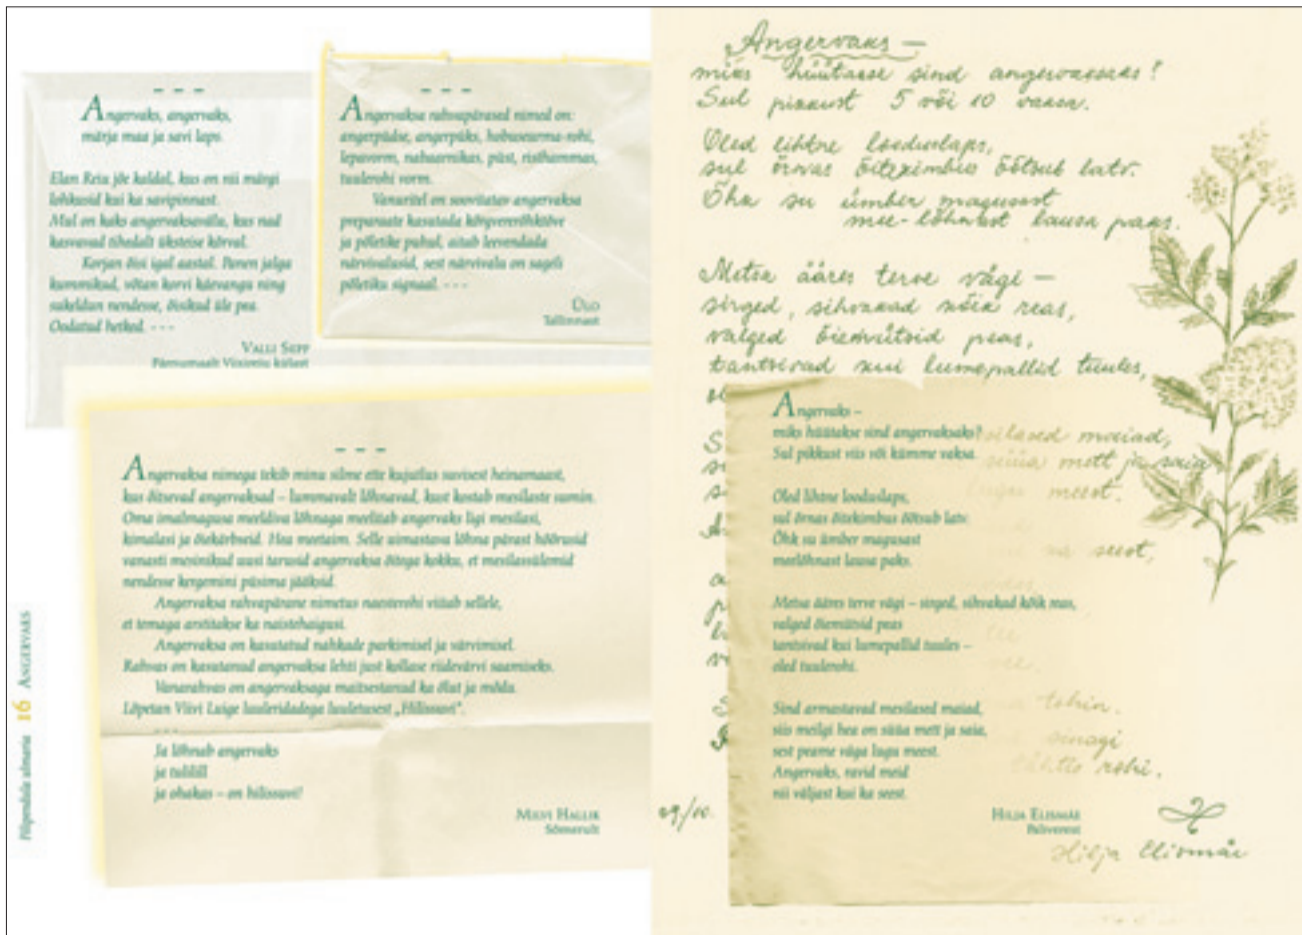 - - -
Angervaks, angervaks,
märja maa ja savi laps.
Elan Reiu jõe kaldal, kus on nii märgi
lohkusid kui ka savipinnast.
Mul on kaks angervaksavälu, kus nad
kasvavad tihedalt üksteise kõrval.
Korjan õisi igal aastal. Panen jalga
kummikud, võtan korvi käevangu ning
sukeldun nendesse, õisikud üle pea.
Oodatud hetked. - - -
Valli Sepp
Pärnumaalt külast
- - -
Angervaksa rahvapärased nimed on:
angerpüdse, angerpüks, hobusearma-rohi,
lepavorm, nabaarnikas, püst, risthammas,
tuulerohi vorm.
Vanuritel on soovitatav angervaksa
preparaate kasutada kõrgvererõhktõve
ja põletike puhul, aitab leevendada
närvivalusid, sest närvivalu on sageli
põletiku signaal. - - -
Ülo
Tallinnast
- - -
Angervaksa nimega tekib minu silme ette kujutlus suvisest heinamaast,
kus õitsevad angervaksad – lummavalt lõhnavad, kust kostab mesilaste sumin.
Oma imalmagusa meeldiva lõhnaga meelitab angervaks ligi mesilasi,
kimalasi ja õiekärbseid. Hea meetaim. Selle uimastava lõhna pärast hõõrusid
vanasti mesinikud uusi tarusid angervaksa õitega kokku, et mesilassülemid
nendesse kergemini püsima jääksid.
Angervaksa rahvapärane nimetus naisterohi viitab sellele,
et temaga arstitakse ka naistehaigusi.
Angervaksa on kasutatud nahkade parkimisel ja värvimisel.
Rahvas on kasutanud angervaksa lehti just kollase riidevärvi saamiseks.
Vanarahvas on angervaksaga maitsestanud ka õlut ja mõdu.
Lõpetan Viivi Luige luuleridadega luuletusest „Hilissuvi".
- - -
Ja lõhnab angervaks
ja tulilill
ja ohakas – on hilissuvi!
Milvi Hallik
Sõmerult
Filipendula ulmaria 16 Angervaks
Angervaks –
miks hüütakse sind angervaksaks?
Sul pikkust 5 või 10 vaksa.
Oled lihtne looduslaps,
sul õrnas õitekimbus õõtsub latv.
Õhk su ümber magusast
mee-lõhnast lausa paks.
Metsa ääres terve vägi –
sirged, sihvakad kõik reas,
valged õiemütsid peas,
tantsivad kui lumepallid tuules,
Angervaks –
miks hüütakse sind angervaksaks?
Sul pikkust viis või kümme vaksa.
Oled lihtne looduslaps,
sul õrnas õitekimbus õõtsub latv.
Õhk su ümber magusast
meelõhnast lausa paks.
Metsa ääres terve vägi – sirged, sihvakad kõik reas,
valged õiemütsid peas
tantsivad kui lumepallid tuules –
oled tuulerohi.
Sind armastavad mesilased maiad,
siis meilgi hea on süüa mett ja saia,
sest peame väga lugu meest.
Angervaks, ravid meid
nii väljast kui ka seest.
Hilja Elismäe
Paliverest
silased maiad,
süüa mett ja saia
lugu meest.
ka seest,
sinagi
rohi.
29/10.
Hilja Elismäe